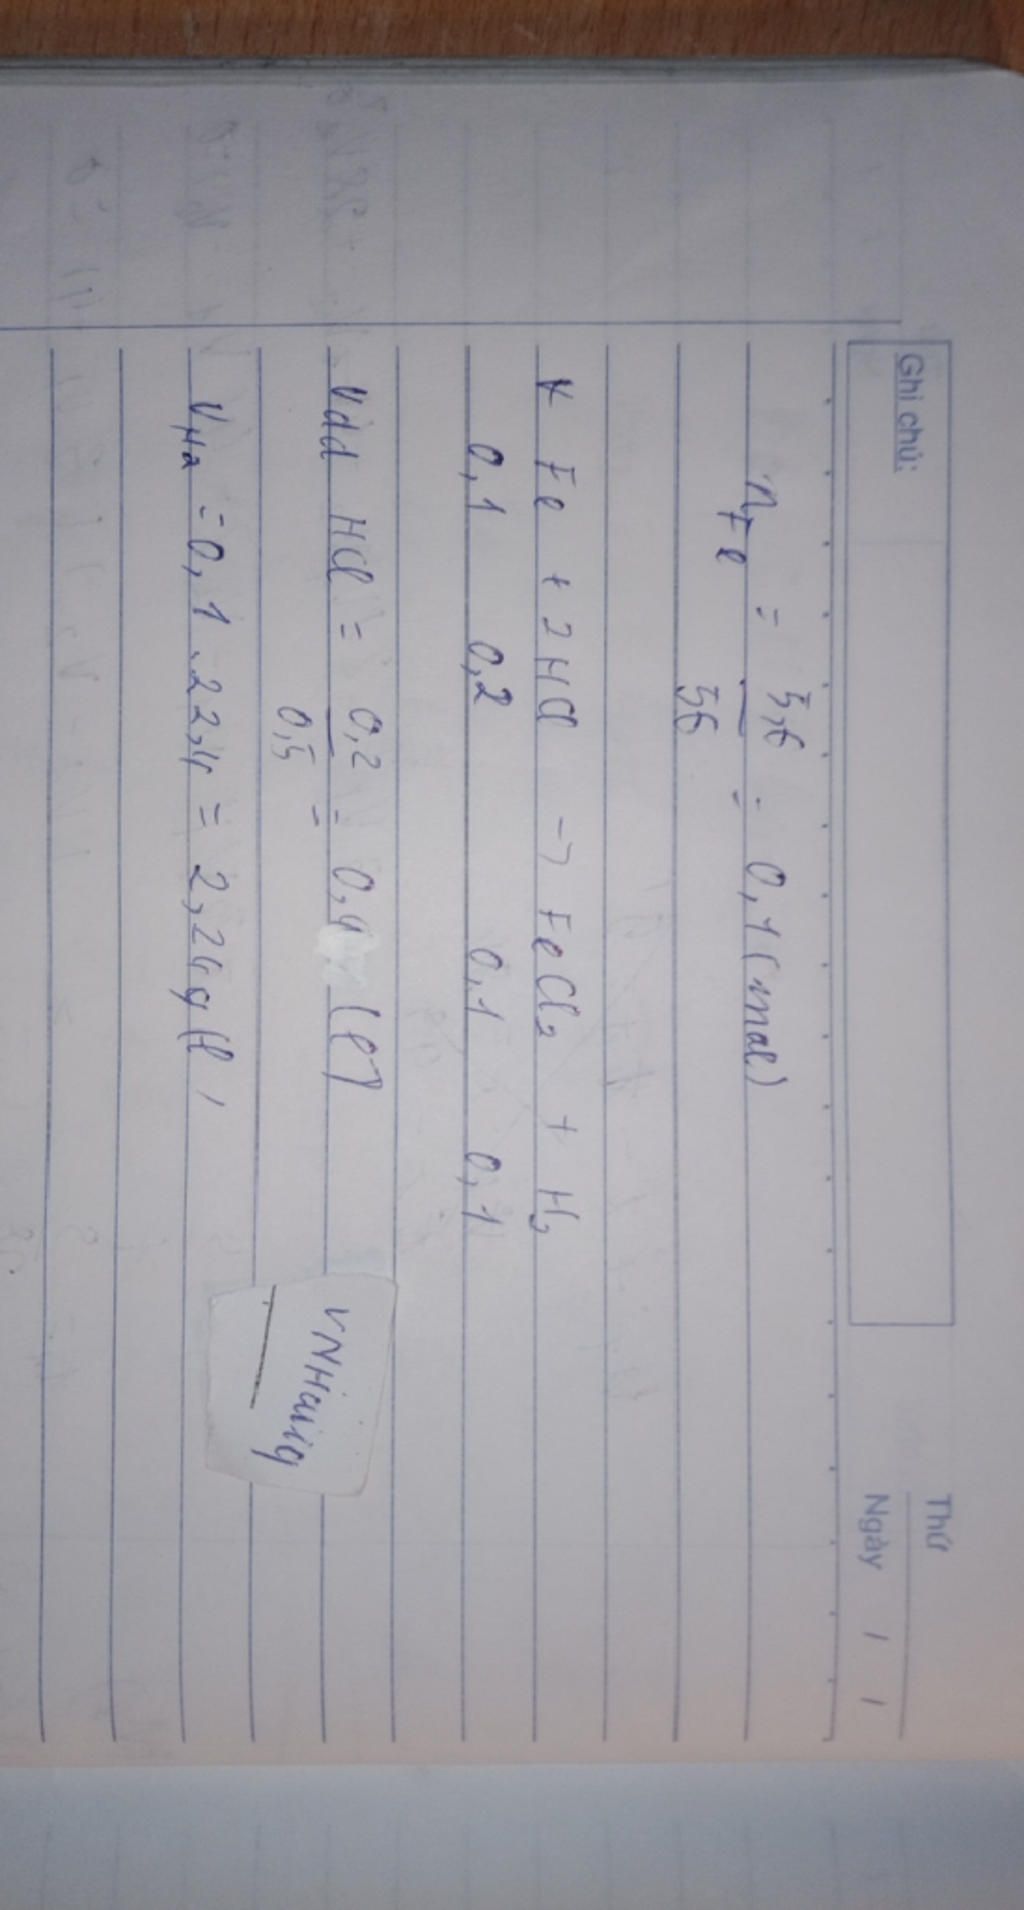 Ghi chú:
Thứ
Ngày / /
nFe = 5,6 = 0,1 (mol)
56
* Fe + 2HCl -> FeCl2 + H2
0,1 0,2 0,1 0,1
Vdd HCl = 0,2 = 0,4 (l)
0,5
VH2 = 0,1 . 22,4 = 2,24 (l)